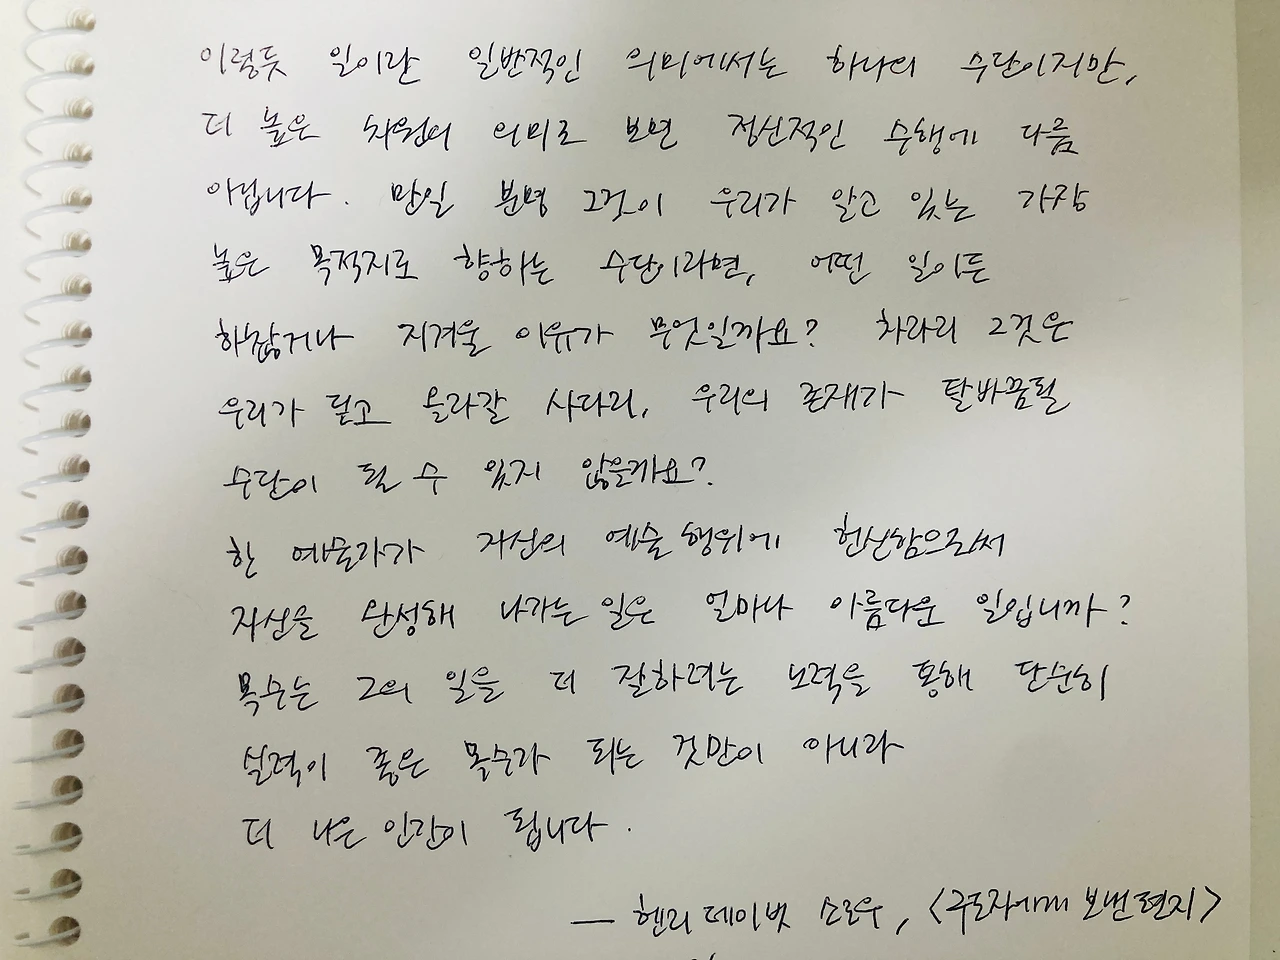 이렇듯 일이란 일반적인 의미에서는 하나의 수단이지만,
더 높은 차원의 의미로 보면 정신적인 수행에 다름
아닙니다. 만일 분명 그것이 우리가 알고 있는 가장
높은 목적지로 향하는 수단이라면, 어떤 일이든
하찮거나 지겨울 이유가 무엇일까요? 차라리 그것은
우리가 딛고 올라갈 사다리, 우리의 존재가 탈바꿈될
수단이 될 수 있지 않을까요?
한 예술가가 자신의 예술 행위에 헌신함으로써
자신을 완성해 나가는 일은 얼마나 아름다운 일입니까?
목수는 그의 일을 더 잘하려는 노력을 통해 단순히
실력이 좋은 목수가 되는 것만이 아니라
더 나은 인간이 됩니다.
— 헨리 데이빗 소로우, <구도자에게 보낸 편지>